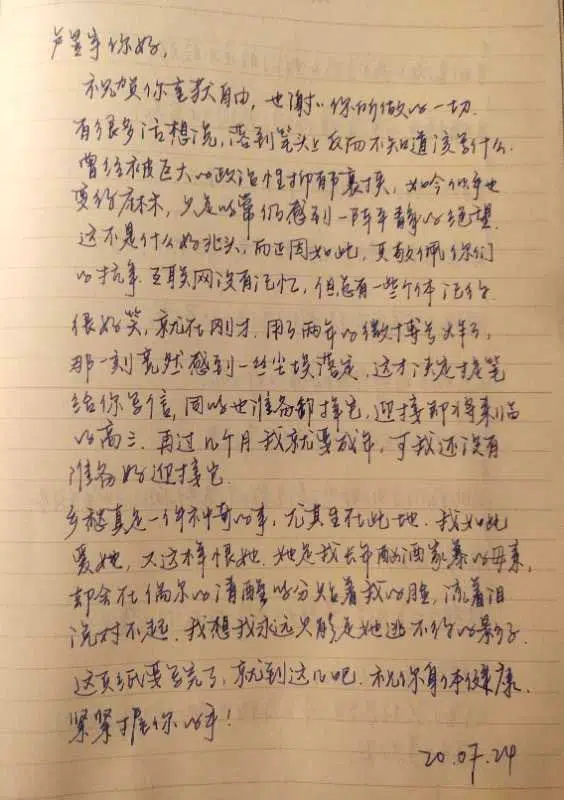 卢昱宇你好，
祝贺你重获自由，也谢谢你所做的一切.
有很多话想说，落到笔头上反而不知道该写什么.
曾经被巨大的政治性抑郁裹挟，如今似乎也
变得麻木，只是时常仍感到一阵平静的绝望.
这不是什么好兆头，而正因如此，更敬佩你们
的抗争. 互联网没有记忆，但总有一些个体记得.
很好笑，就在刚才. 用了两年的微博号炸了，
那一刻竟然感到一丝尘埃落定，这才决定提笔
给你写信，同时也准备卸掉它，迎接即将来临
的高三. 再过几个月我就要成年，可我还没有
准备好迎接它.
乡愁真是一件神奇的事，尤其生在此地. 我如此
爱她，又这样恨她. 她是我长年酗酒家暴的母亲，
却会在偶尔的清醒时分贴着我的脸，流着泪
说对不起. 我想我永远只能是她逃不掉的影子.
这页纸要写完了，就到这儿吧. 祝你身体健康.
紧紧握你的手！
20.07.24